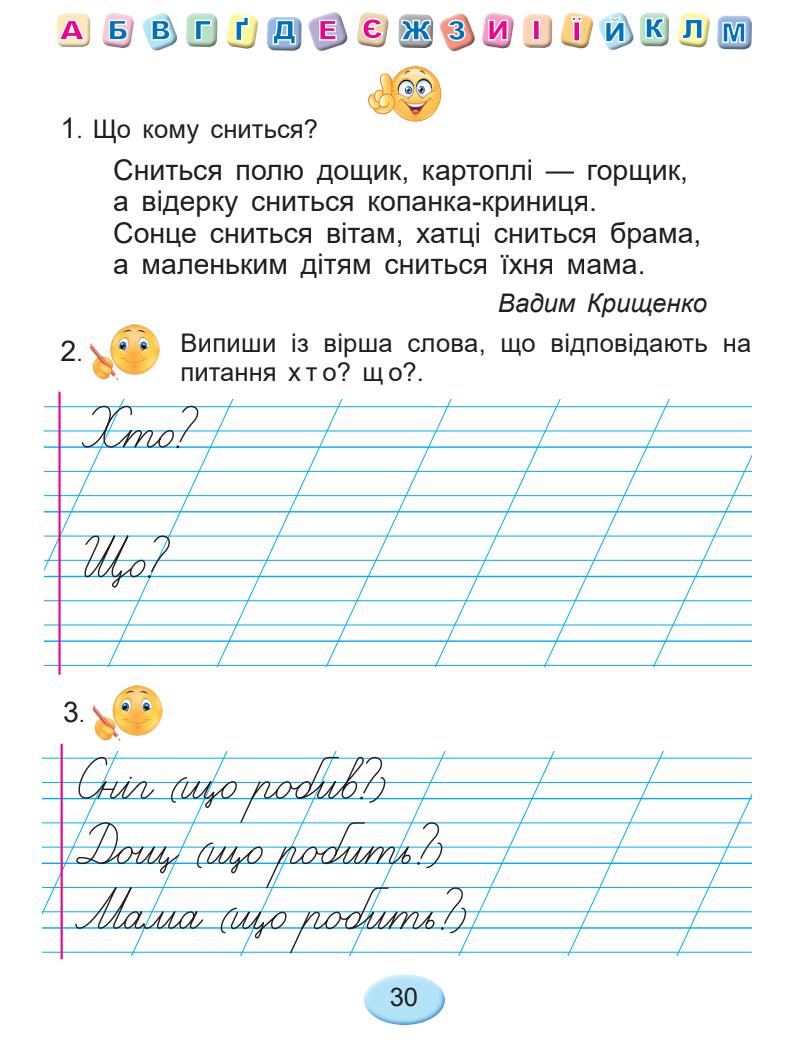 А Б В Г Ґ Д Е Є Ж З И І Ї Й К Л М
1. Що кому сниться?
Сниться полю дощик, картоплі — горщик,
а відерку сниться копанка-криниця.
Сонце сниться вітам, хатці сниться брама,
а маленьким дітям сниться їхня мама.
Вадим Крищенко
2. Випиши із вірша слова, що відповідають на
питання х т о? щ о?.
Хто?
Що?
3.
Сніг (що робив?)
Дощ (що робить?)
Мама (що робить?)
30